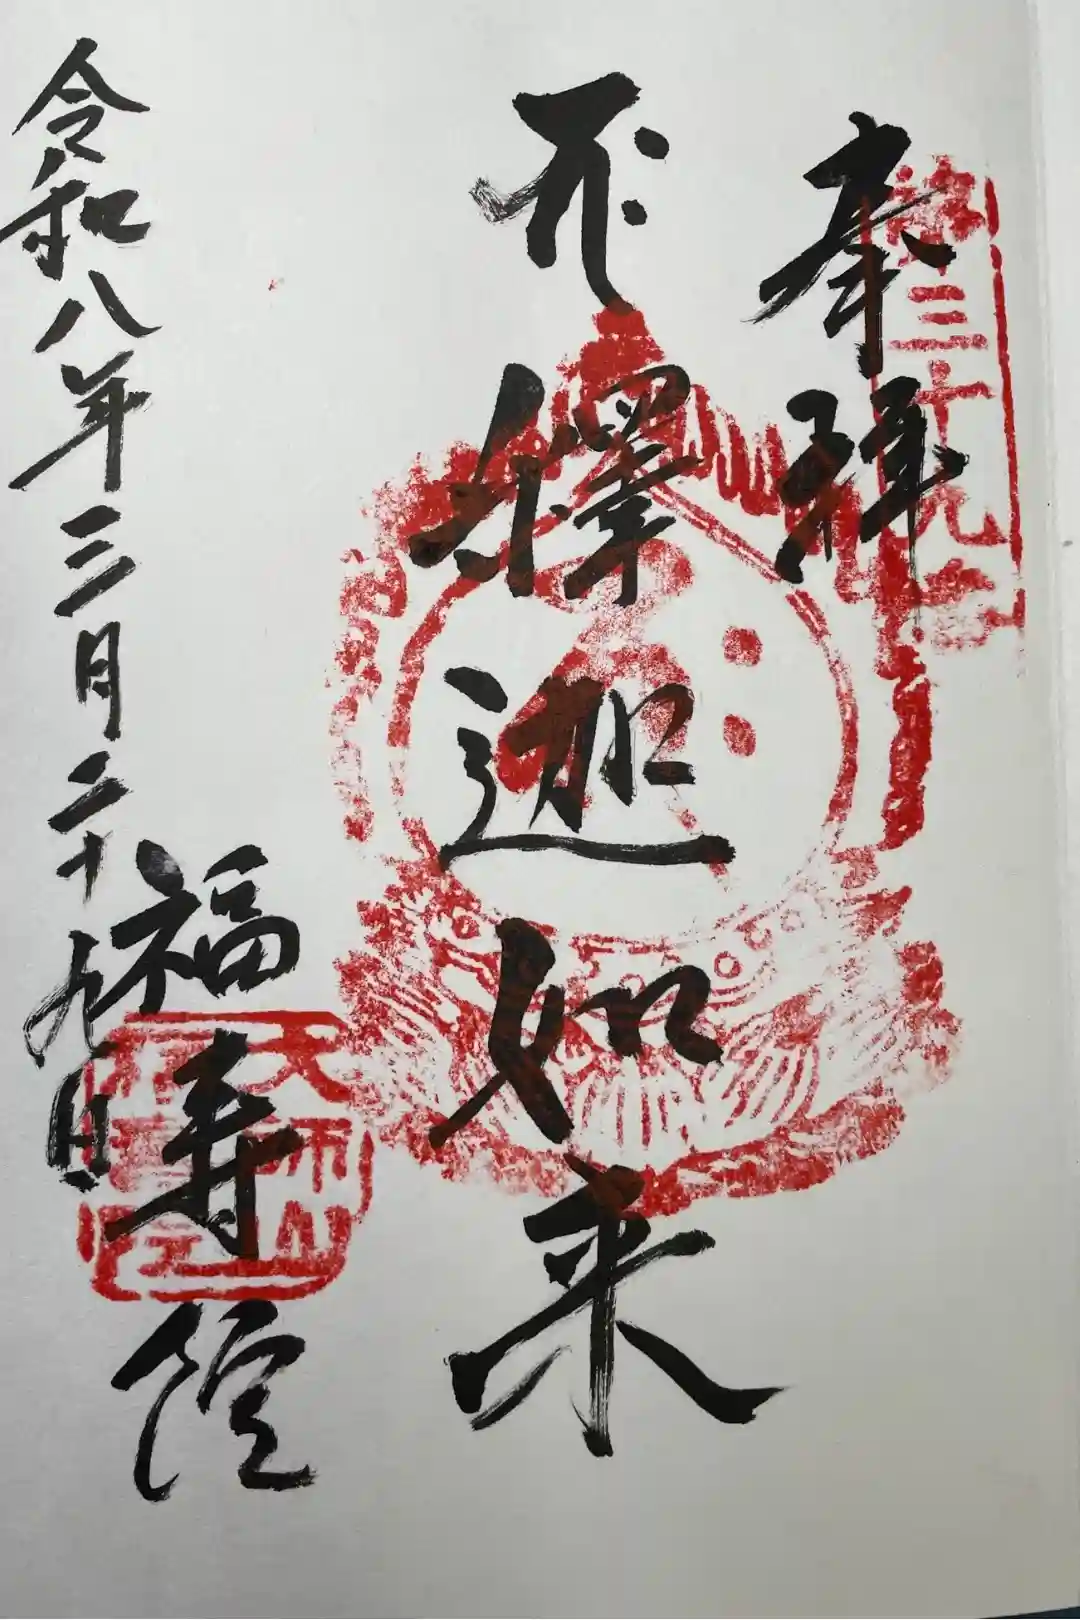 奉拝
三十九
釋迦如来
福寿院
令和八年三月二十九日